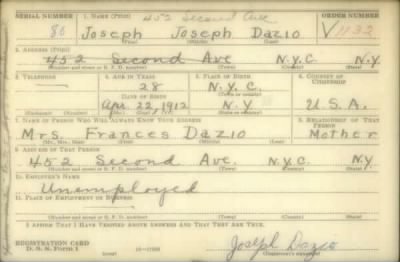 SERIAL NUMBER
1. NAME (Print)
452 Second Ave
ORDER NUMBER
80
Joseph Joseph Dazio
V1132
(First) (Middle) (Last)
2. ADDRESS (Print)
452 Second Ave N.Y.C. N.Y.
(Number and street or R. F. D. number) (Town) (County) (State)
3. TELEPHONE
4. AGE IN YEARS
5. PLACE OF BIRTH
6. COUNTRY OF CITIZENSHIP
28
N.Y.C.
DATE OF BIRTH
(Town or county)
Apr. 22, 1912
N.Y
U.S.A.
(Exchange) (Number)
(Mo.) (Day) (Yr.)
(State or country)
7. NAME OF PERSON WHO WILL ALWAYS KNOW YOUR ADDRESS
8. RELATIONSHIP OF THAT PERSON
Mrs. Frances Dazio
Mother
(Mr., Mrs., Miss) (First) (Middle) (Last)
9. ADDRESS OF THAT PERSON
452 Second Ave. N.Y.C. N.Y
(Number and street or R. F. D. number) (Town) (County) (State)
10. EMPLOYER'S NAME
Unemployed
11. PLACE OF EMPLOYMENT OR BUSINESS
(Number and street or R. F. D. number) (Town) (County) (State)
I AFFIRM THAT I HAVE VERIFIED ABOVE ANSWERS AND THAT THEY ARE TRUE.
REGISTRATION CARD
D. S. S. Form 1
(over)
Joseph Dazio
(Registrant's signature)